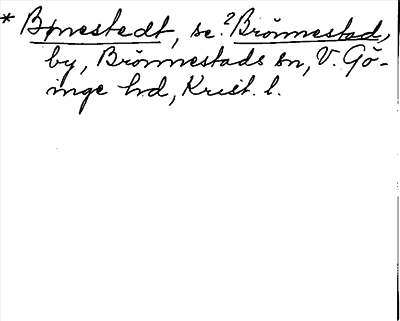 * Bønestedt, se ²Brönnestad,
by, Brönnestads sn, V. Gö-
inge hd, Krist. l.